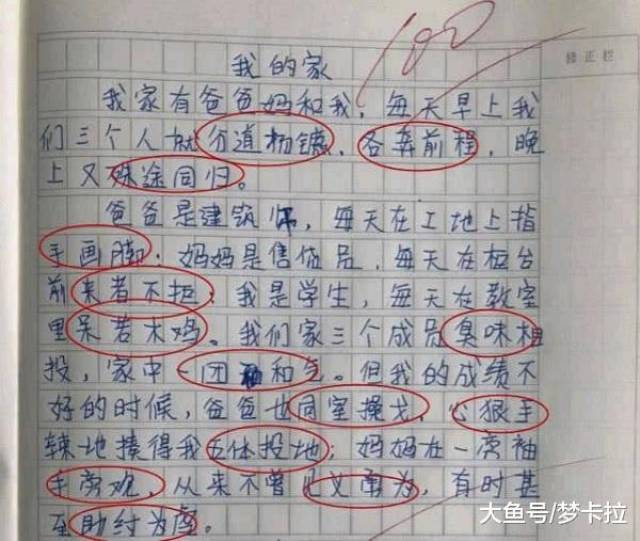 100
修正栏
我的家
我家有爸爸妈和我，每天早上我
们三个人就分道杨镳，各奔前程，晚
上又殊途同归。
爸爸是建筑师，每天在工地上指
手画脚；妈妈是售货品，每天在柜台
前来者不拒；我是学生，每天在教室
里呆若木鸡。我们家三个成员臭味相
投，家中一团和气。但我的成绩不
好的时候，爸爸也同室操戈，心狠手
辣地揍得我五体投地；妈妈在一旁袖
手旁观，从来不曾见义勇为，有时甚
至助纣为虐。
大鱼号/梦卡拉